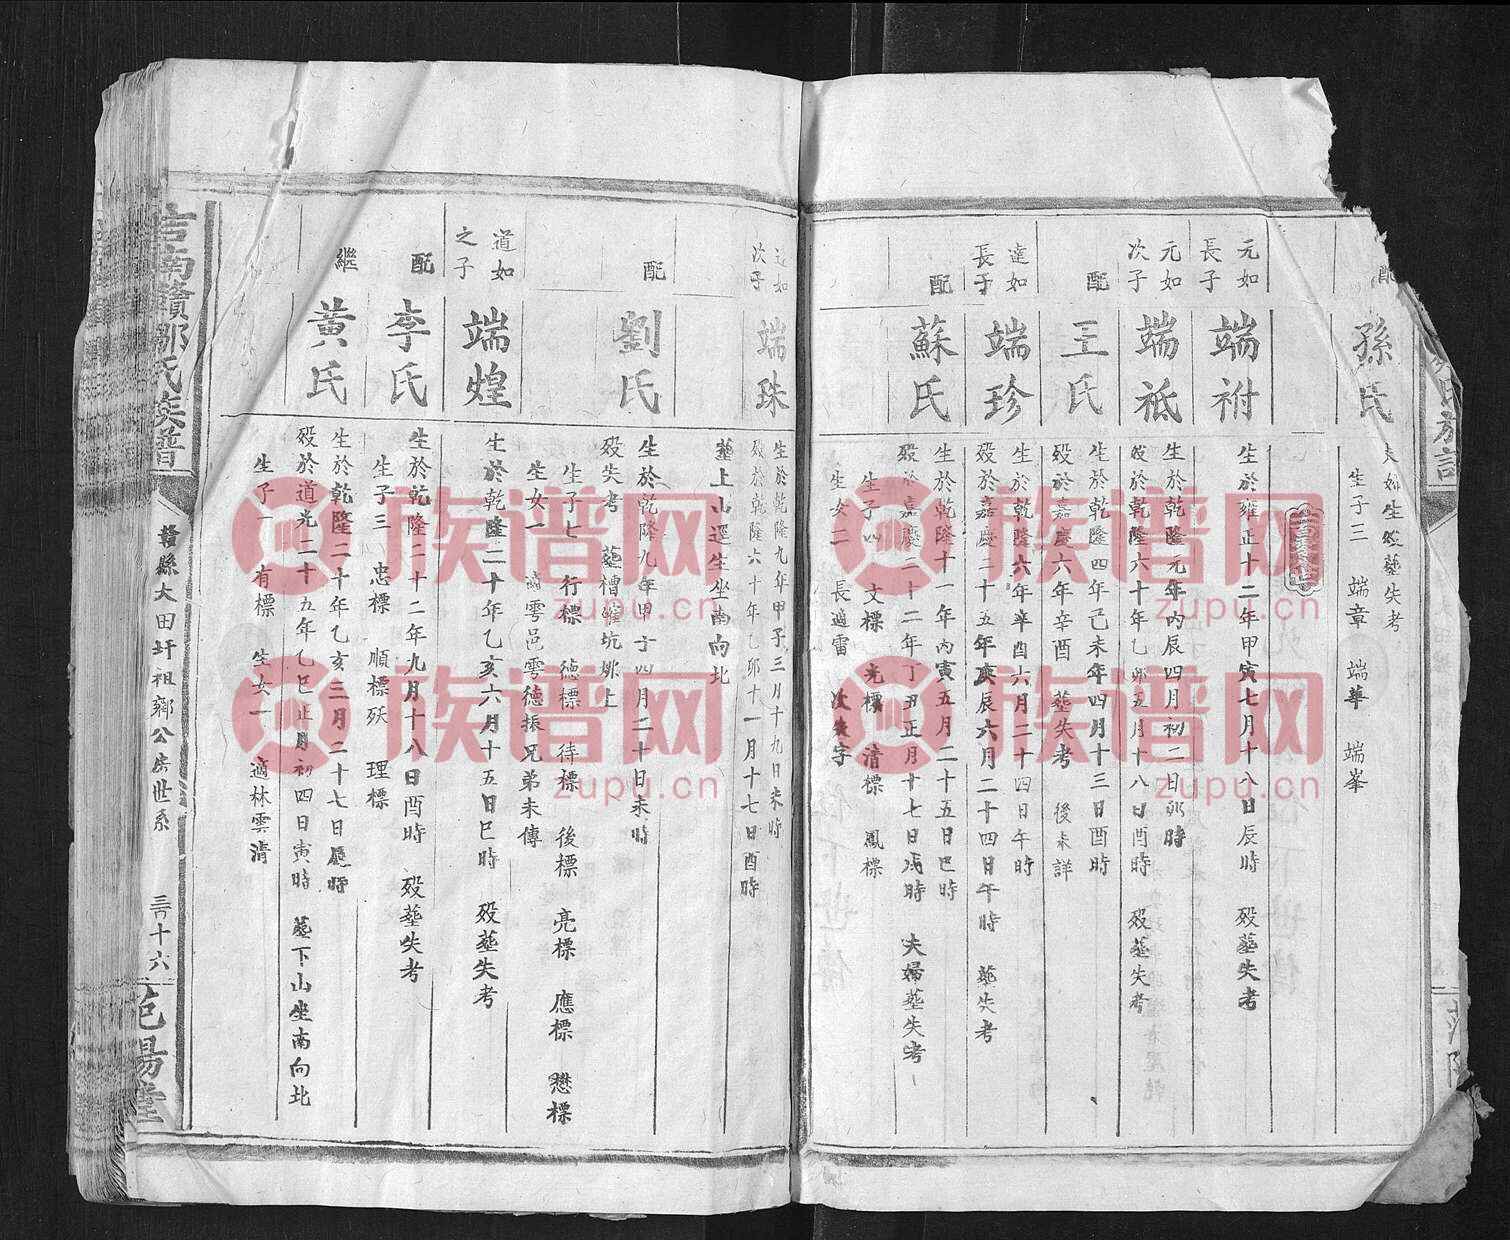 配
孫氏
夫如生歿塟失考
生子三 端章 端華 端峯
元如
長子
端祔
生於雍正十二年甲寅七月十八日辰時 歿塟失考
元如
次子
端祗
生於乾隆元年丙辰四月初二日卯時
歿於乾隆六十年乙卯五月十八日酉時 歿塟失考
配
王氏
生於乾隆四年己未年四月十三日酉時
歿於嘉慶六年辛酉 塟失考 後未詳
達如
長子
端珍
生於乾隆六年辛酉六月二十四日午時
歿於嘉慶二十五年庚辰六月二十四日午時 塟失考
配
蘇氏
生於乾隆十一年丙寅五月二十五日巳時
歿於嘉慶二十二年丁丑正月十七日戌時 夫婦塟失考
生子四 文標 光標 清標 鳳標
生女二 長適雷 次失字
達如
次子
端珠
生於乾隆九年甲子三月十九日未時
歿於乾隆六十年乙卯十一月十七日酉時
塟上山逕生坐南向北
配
劉氏
生於乾隆九年甲子四月二十日未時
歿失考 塟槽籮坑㘭上
生子七 行標 德標 待標 後標 亮標 應標 懋標
生女一 適雩邑雩德振兄弟未傳
道如
之子
端煌
生於乾隆二十年乙亥六月十五日巳時 歿塟失考
配
李氏
生於乾隆二十二年九月十八日酉時 歿塟失考
生子三 忠標 順標殀 理標
繼
黃氏
生於乾隆二十年乙亥三月二十七日辰時
歿於道光二十五年乙巳正月初四日寅時 塟下山坐南向北
生子一 有標 生女一 適林雲清
吉南贛鄒氏族譜
贛縣大田圩祖鄒公房世系
三十六
范陽堂
族谱网
zupu.cn
族谱网
zupu.cn
族谱网
zupu.cn
族谱网
zupu.cn